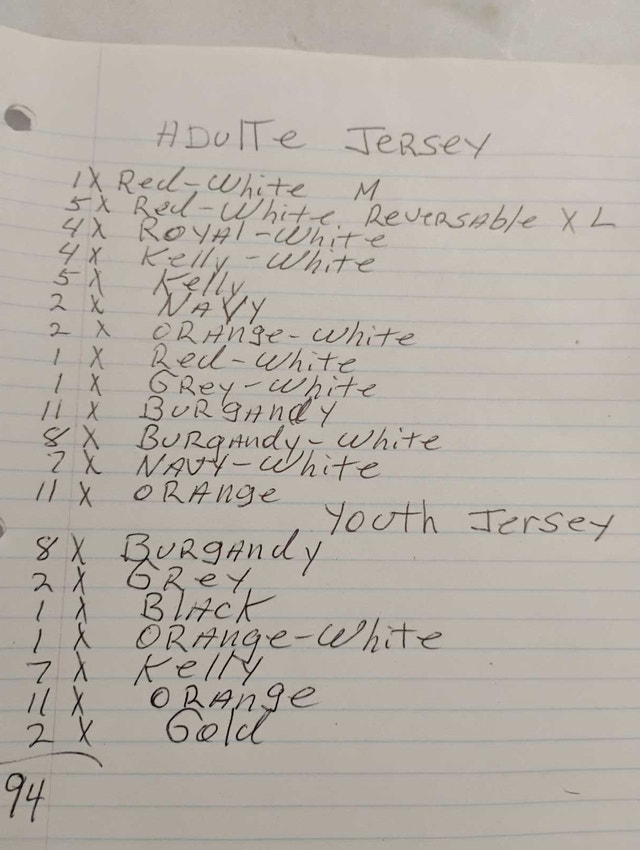 ADULTe JeRsey
1X Red-White M
5X Red-White ReveRsable XL
4X ROYAl-White
4x Kelly-White
5X Kelly
2 X NAVY
2 X ORAnge-White
1 X Red-White
1 X GRey-White
11 X BURgAndY
8 X BURgAndy-White
7 X NAVY-White
11 X ORAnge
Youth Jersey
8 X BURgAndy
2 X GRey
1 X BlACK
1 X ORAnge-White
7 X Kelly
11 X ORAnge
2 X Gold
94